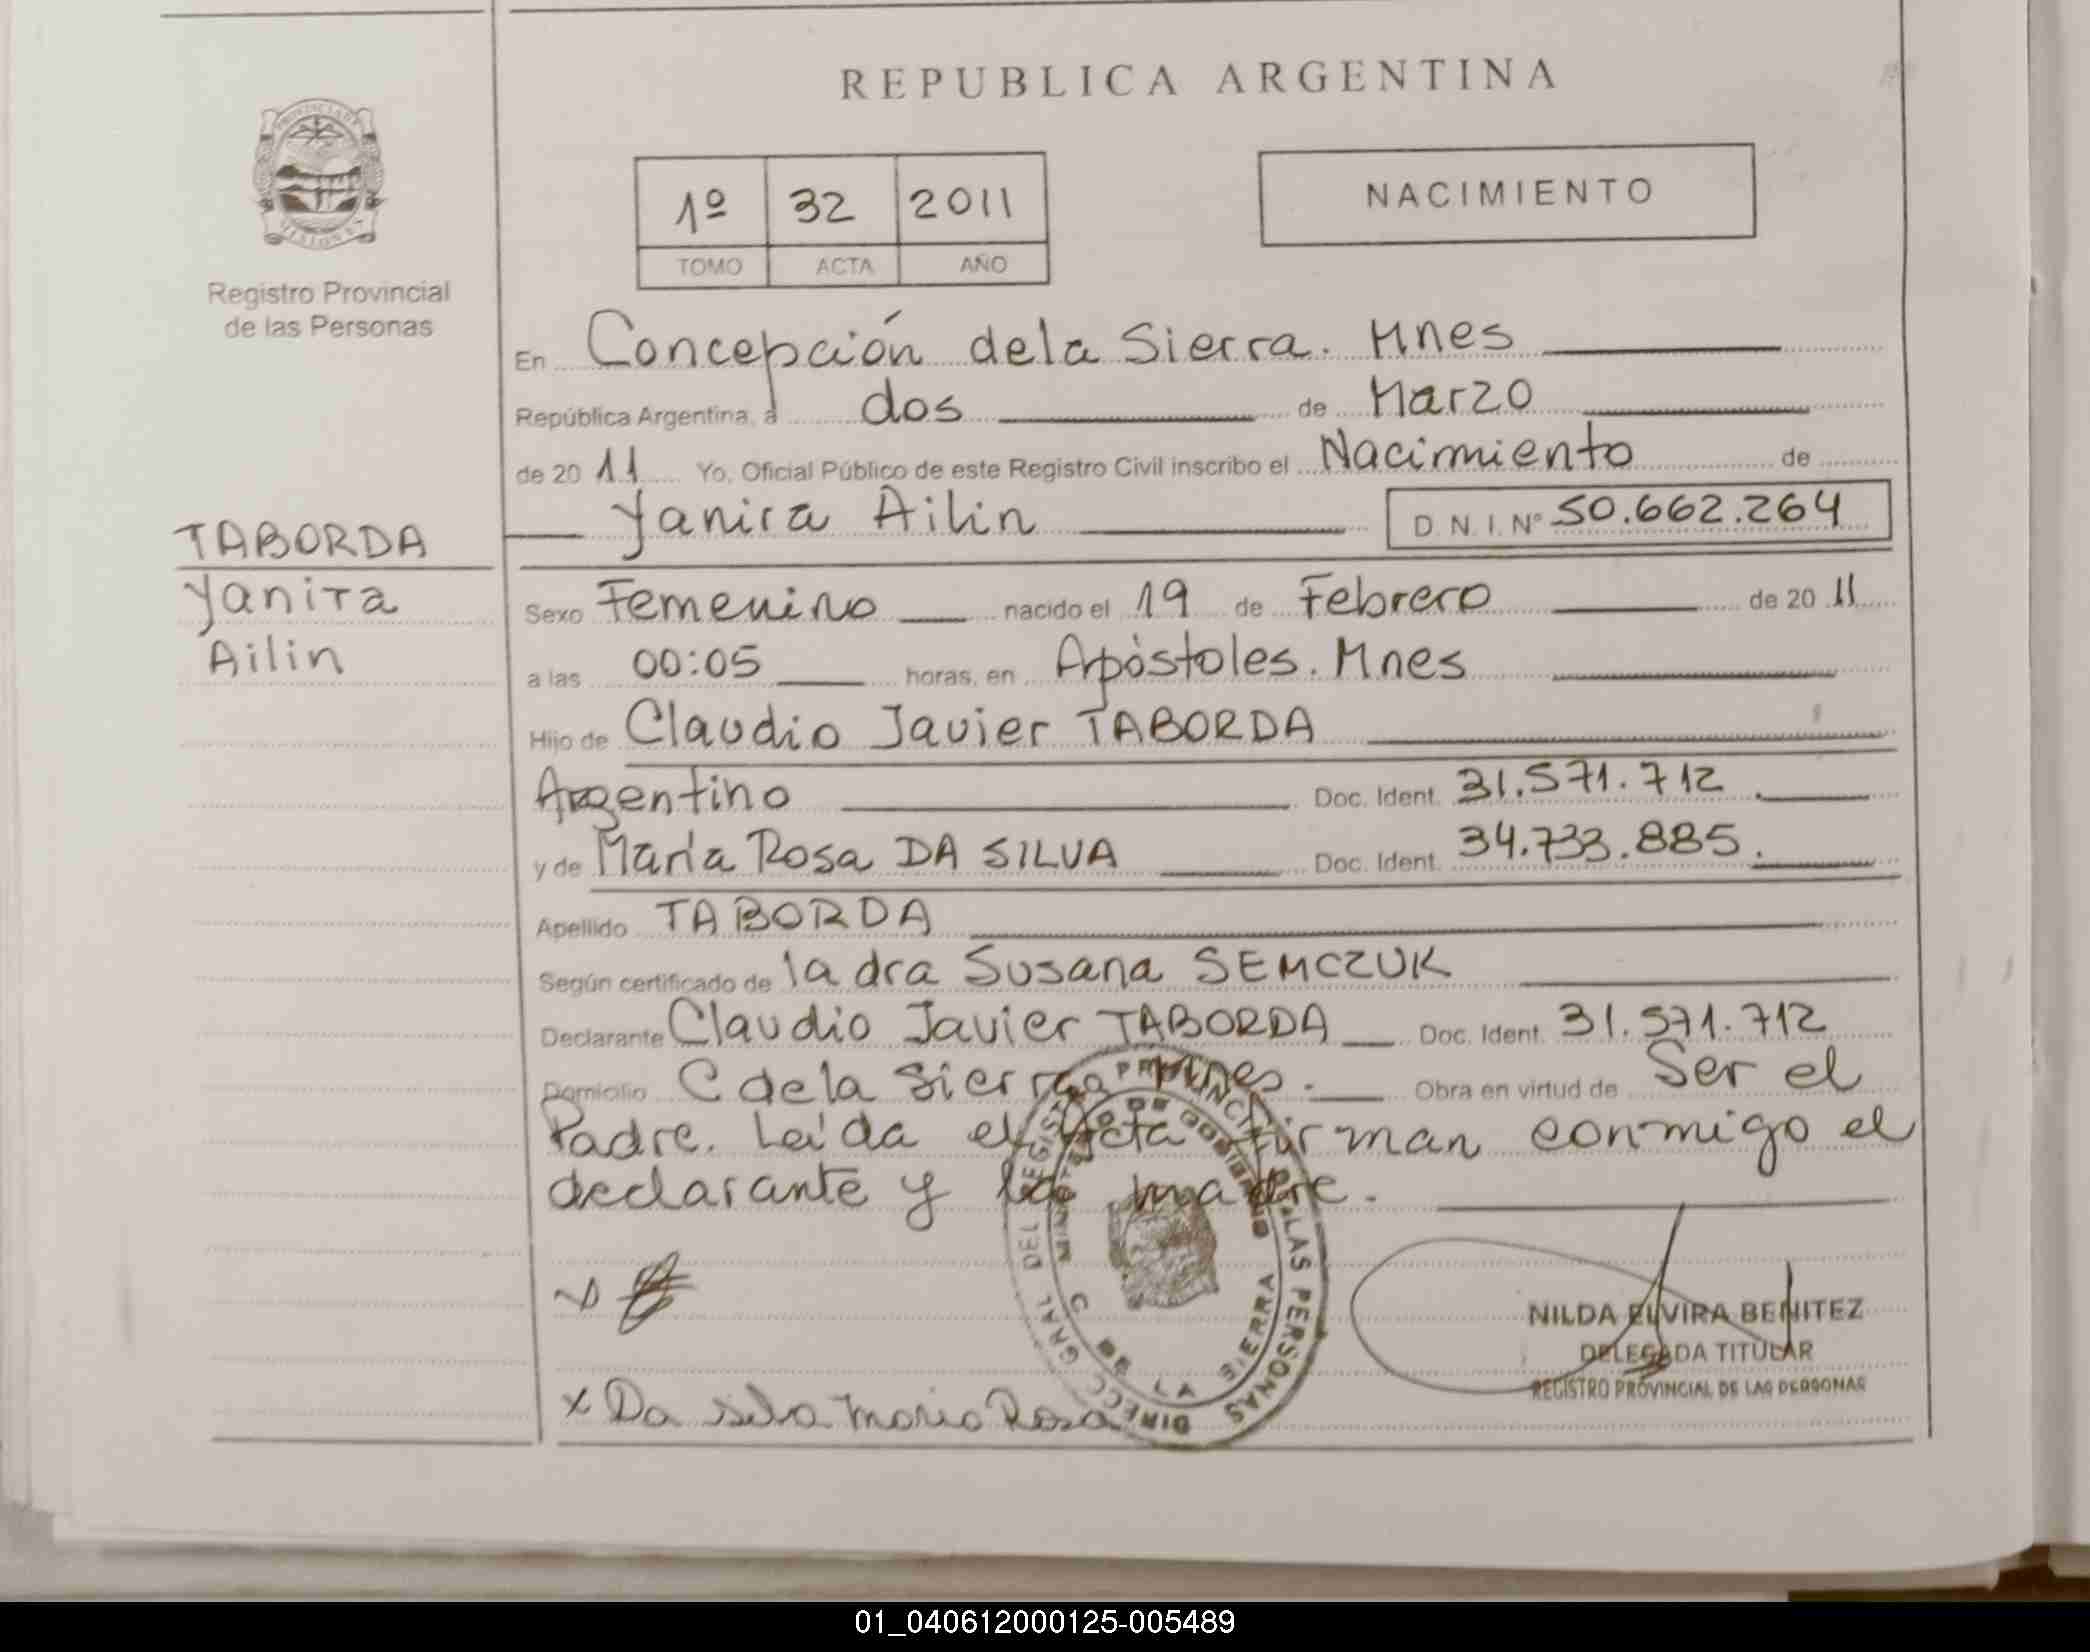 REPUBLICA ARGENTINA
1º 32 2011
TOMO ACTA AÑO
NACIMIENTO
Registro Provincial
de las Personas
TABORDA
Yanira
Ailin
En Concepción de la Sierra. Mnes
República Argentina, a dos de Marzo
de 20 11 Yo, Oficial Público de este Registro Civil inscribo el Nacimiento de
Yanira Ailin D.N.I. Nº 50.662.264
Sexo Femenino nacido el 19 de Febrero de 20 11
a las 00:05 horas, en Apóstoles. Mnes
Hijo de Claudio Javier TABORDA
Argentino Doc. Ident. 31.571.712
y de María Rosa DA SILVA Doc. Ident. 34.733.885.
Apellido TABORDA
Según certificado de la dra Susana SEMCZUK
Declarante Claudio Javier TABORDA Doc. Ident. 31.571.712
Domicilio C de la Sierra Mnes. Obra en virtud de Ser el
Padre. Leída el Acta firman conmigo el
declarante y la madre.
x Da silva Maria Rosa
NILDA ELVIRA BENITEZ
DELEGADA TITULAR
REGISTRO PROVINCIAL DE LAS PERSONAS
C DE LA SIERRA
01_040612000125-005489